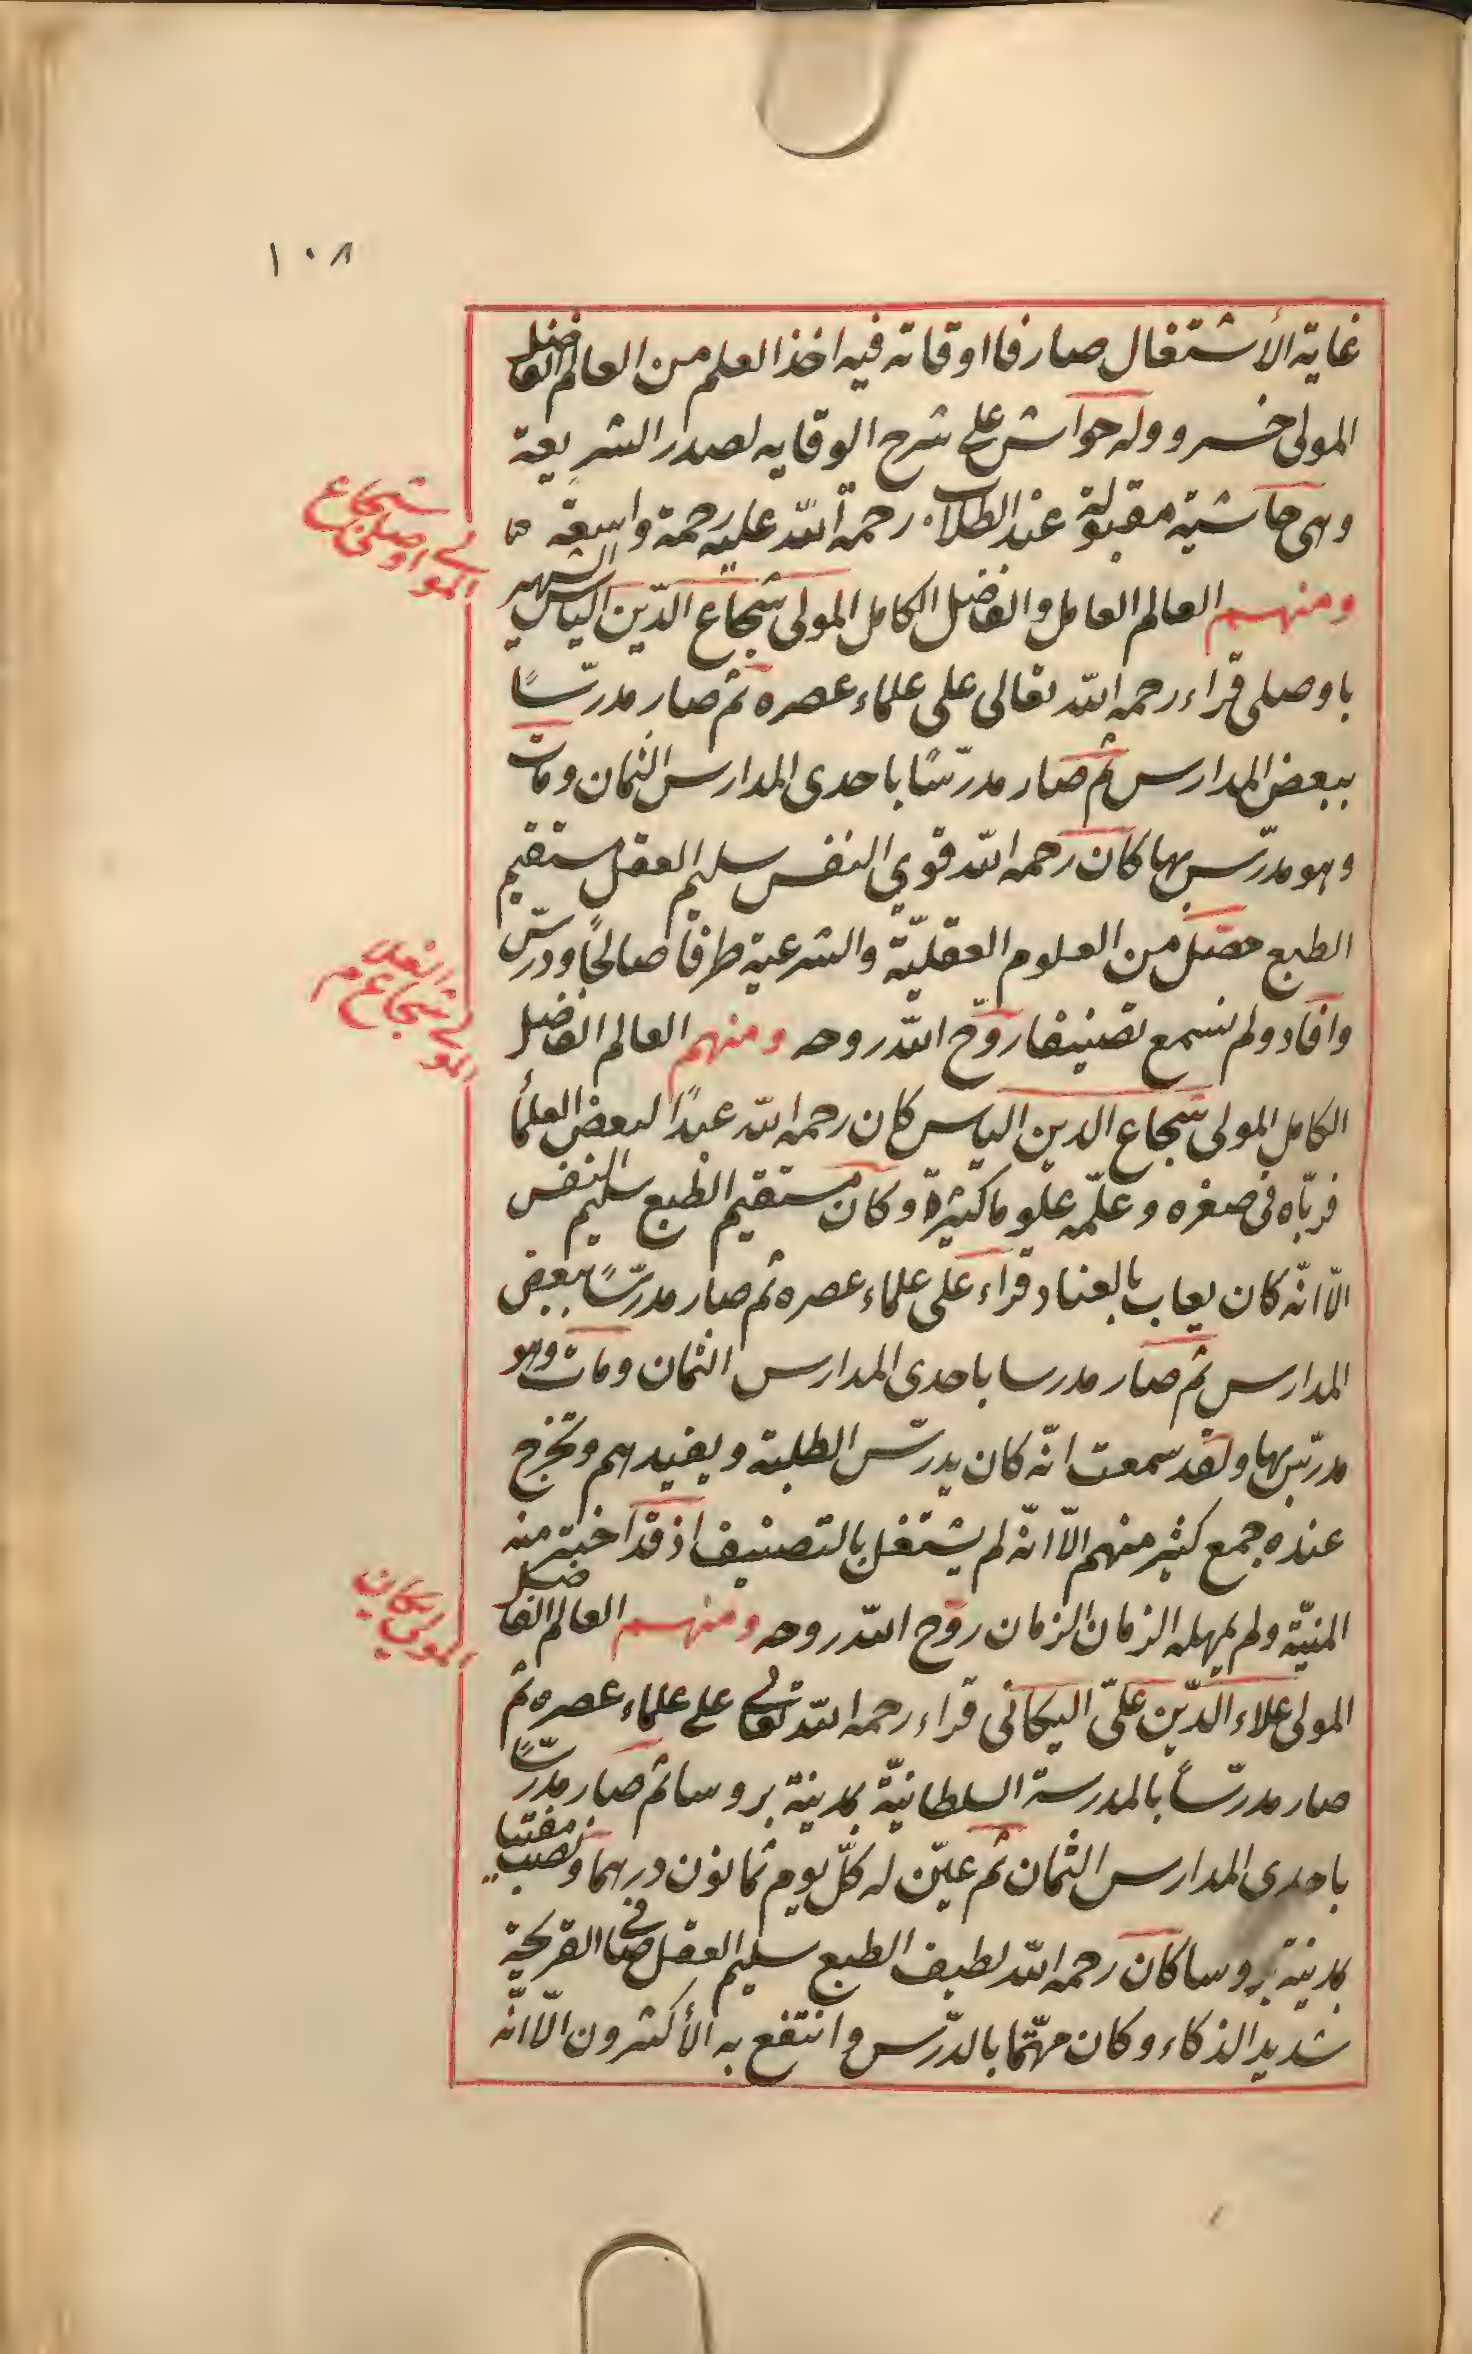 ١٠٨
غاية الأشتغال صارفا اوقاته فيه اخذ العلم من العالم الفاضل
المولى خسرو وله حواش على شرح الوقايه لصدر الشريعة
وهى حاشية مقبولة عند الطلاب رحمة الله عليه رحمة واسعة
ومنهم العالم العامل والفاضل الكامل المولى شجاع الدّين الياس الشهير
باوصلى قراء رحمه الله تعالى على علماء عصره ثم صار مدرّسًا
ببعض المدارس ثم صار مدرّسًا باحدى المدارس الثمان ومات
وهو مدرّس بها كان رحمه الله قوي النفس سليم العقل مستقيم
الطبع حصّل من العلوم العقليّة والشرعية طرفا صالحًا ودرّس
وافاد ولم نسمع تصنيفا روّح الله روحه ومنهم العالم الفاضل
الكامل المولى شجاع الدين الياس كان رحمه الله عبدًا لبعض العلمأ
فربّاه فى صغره وعلّمه علوما كثيرة وكان مستقيم الطبع سليم النفس
الّا انّه كان يعاب بالعناد قراء على علماء عصره ثم صار مدرّسًا ببعض
المدارس ثم صار مدرسا باحدى المدارس الثمان ومات وهو
مدرّس بها ولقد سمعت انّه كان يدرّس الطلبة ويفيدهم وتخرج
عنده جمع كثير منهم الّا انّه لم يشتغل بالتصنيف اذ قد اخترمته
المنيّة ولم يمهله الزمان الزمان روّح الله روحه ومنهم العالم الفاضل
المولى علاء الدّين علىّ اليكانى قراء رحمه الله تعالى على علماء عصره ثم
صار مدرّساً بالمدرسة السلطانيّة بمدينة بروسا ثم صار مدرّسًا
باحدى المدارس الثمان ثم عيّن له كلّ يوم ثمانون درهما ونصب مفتيا
بمدينة بروسا كان رحمه الله لطيف الطبع سليم العقل صافى القريحة
شديد الذكاء وكان مهتمّا بالدّرس وانتفع به الأكثرون الّا انّه
المولى شجاع
اوصلى
المولى شجاع
المولى اليكانى